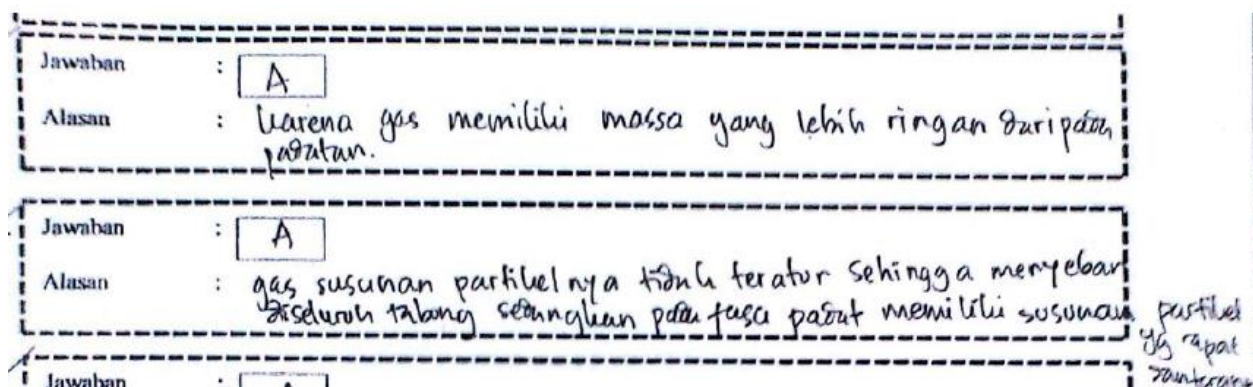 Jawaban : A
Alasan : karena gas memiliki massa yang lebih ringan daripada
padatan.
Jawaban : A
Alasan : gas susunan partikelnya tidak teratur sehingga menyebar
diseluruh tabung sedangkan pada fasa padat memiliki susunan partikel
yg rapat
Jawaban : A